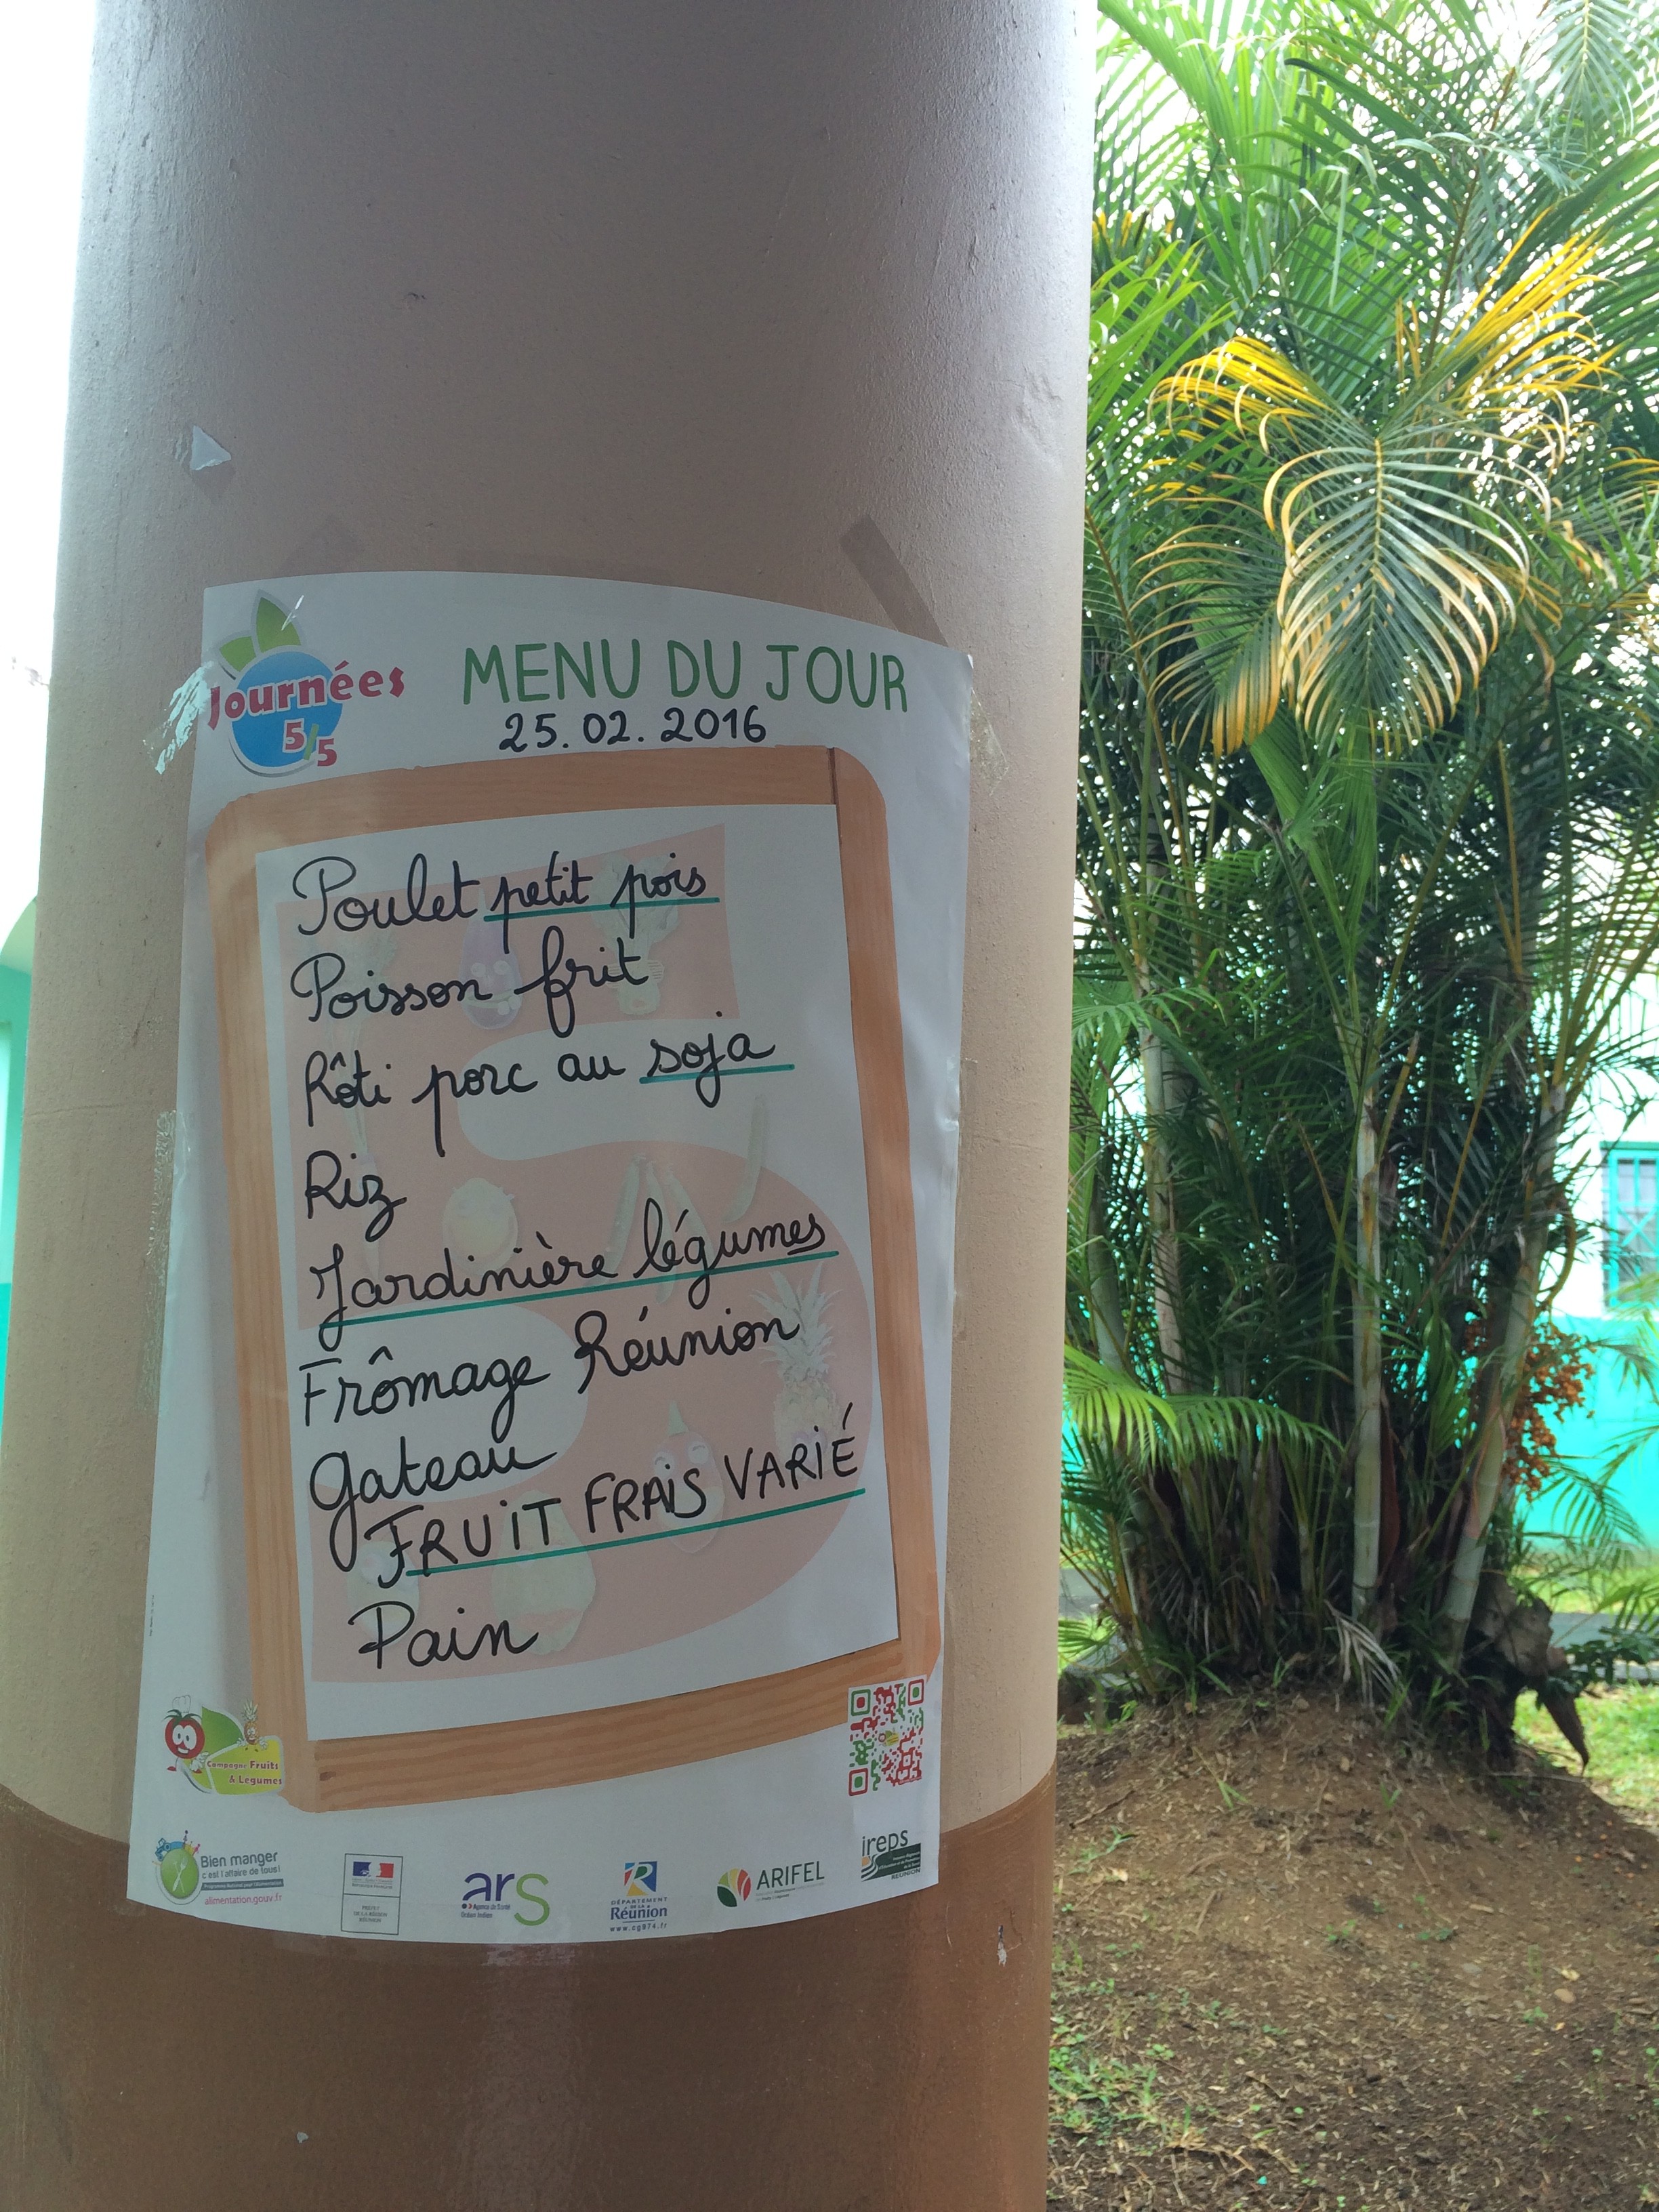 Journées
5/5
MENU DU JOUR
25.02.2016
Poulet petit pois
Poisson frit
Rôti porc au soja
Riz
Jardinière légumes
Frômage Réunion
Gateau
FRUIT FRAIS VARIÉ
Pain
Campagne Fruits
& Legumes
Bien manger
c'est l'affaire de tous!
alimentation.gouv.fr
PREFET
DE LA RÉGION
RÉUNION
ars
Agence de Santé
Océan Indien
DÉPARTEMENT
DE LA
Réunion
www.cg974.fr
ARIFEL
ireps
RÉUNION